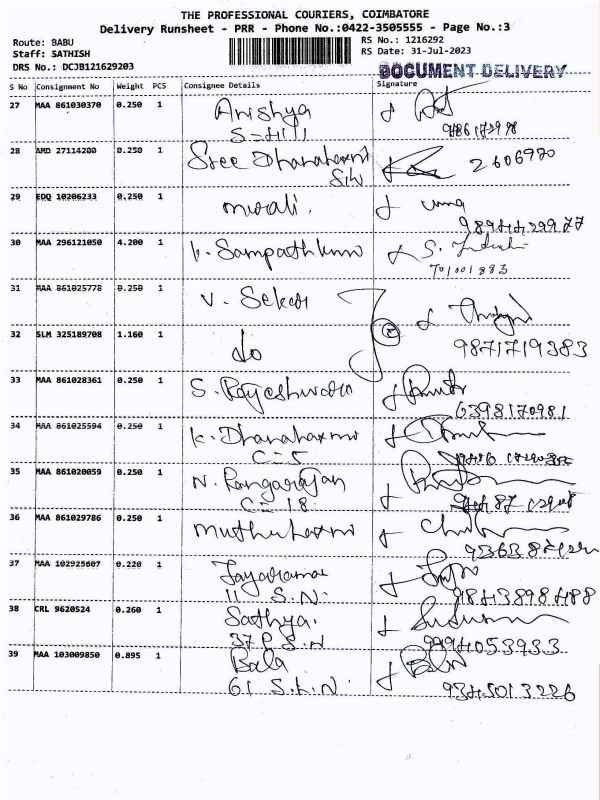 THE PROFESSIONAL COURIERS, COIMBATORE
Delivery Runsheet - PRR - Phone No.:0422-3505555 - Page No.:3
Route: BABU
Staff: SATHISH
DRS No.: DCJB121629203
RS No.: 1216292
RS Date: 31-Jul-2023
DOCUMENT DELIVERY
S No Consignment No Weight PCS Consignee Details Signature
27 MAA 861030370 0.250 1 Anishya
28 AMD 27114200 0.250 1 Sree Dhanalaxmi 2606970
29 EDQ 10206233 0.250 1 murali.
30 MAA 296121050 4.200 1 k. Sampathkumar
701001883
31 MAA 861025778 0.250 1 V. Sekar
32 SLM 325189708 1.160 1 do 9871719383
33 MAA 861028361 0.250 1 S. Rajeshwari
6398170981
34 MAA 861025594 0.250 1 K. Dhanalaxmi
C-5
35 MAA 861020059 0.250 1 N. Rangarajan
C-18
36 MAA 861029786 0.250 1 muthulaxmi
37 MAA 102925607 0.220 1 Jayaraman
11 S.N. 9843898488
38 CRL 9620524 0.260 1 Sathya.
37 P S.N 9994053933
39 MAA 103009850 0.895 1 Bala Bala
61 S.L.N. 9345013226